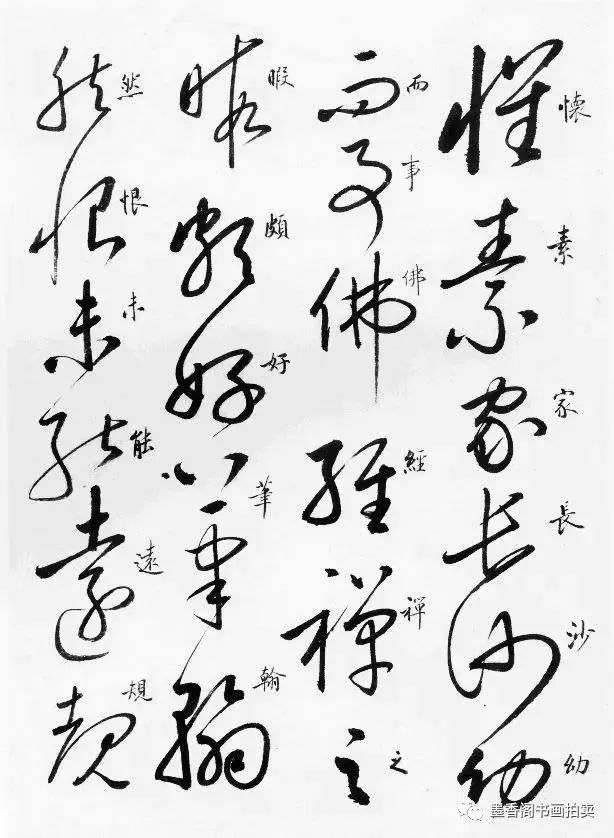 懷素家長沙幼
而事佛經禪之
暇頗好筆翰
然恨未能遠規
墨香阁书画拍卖